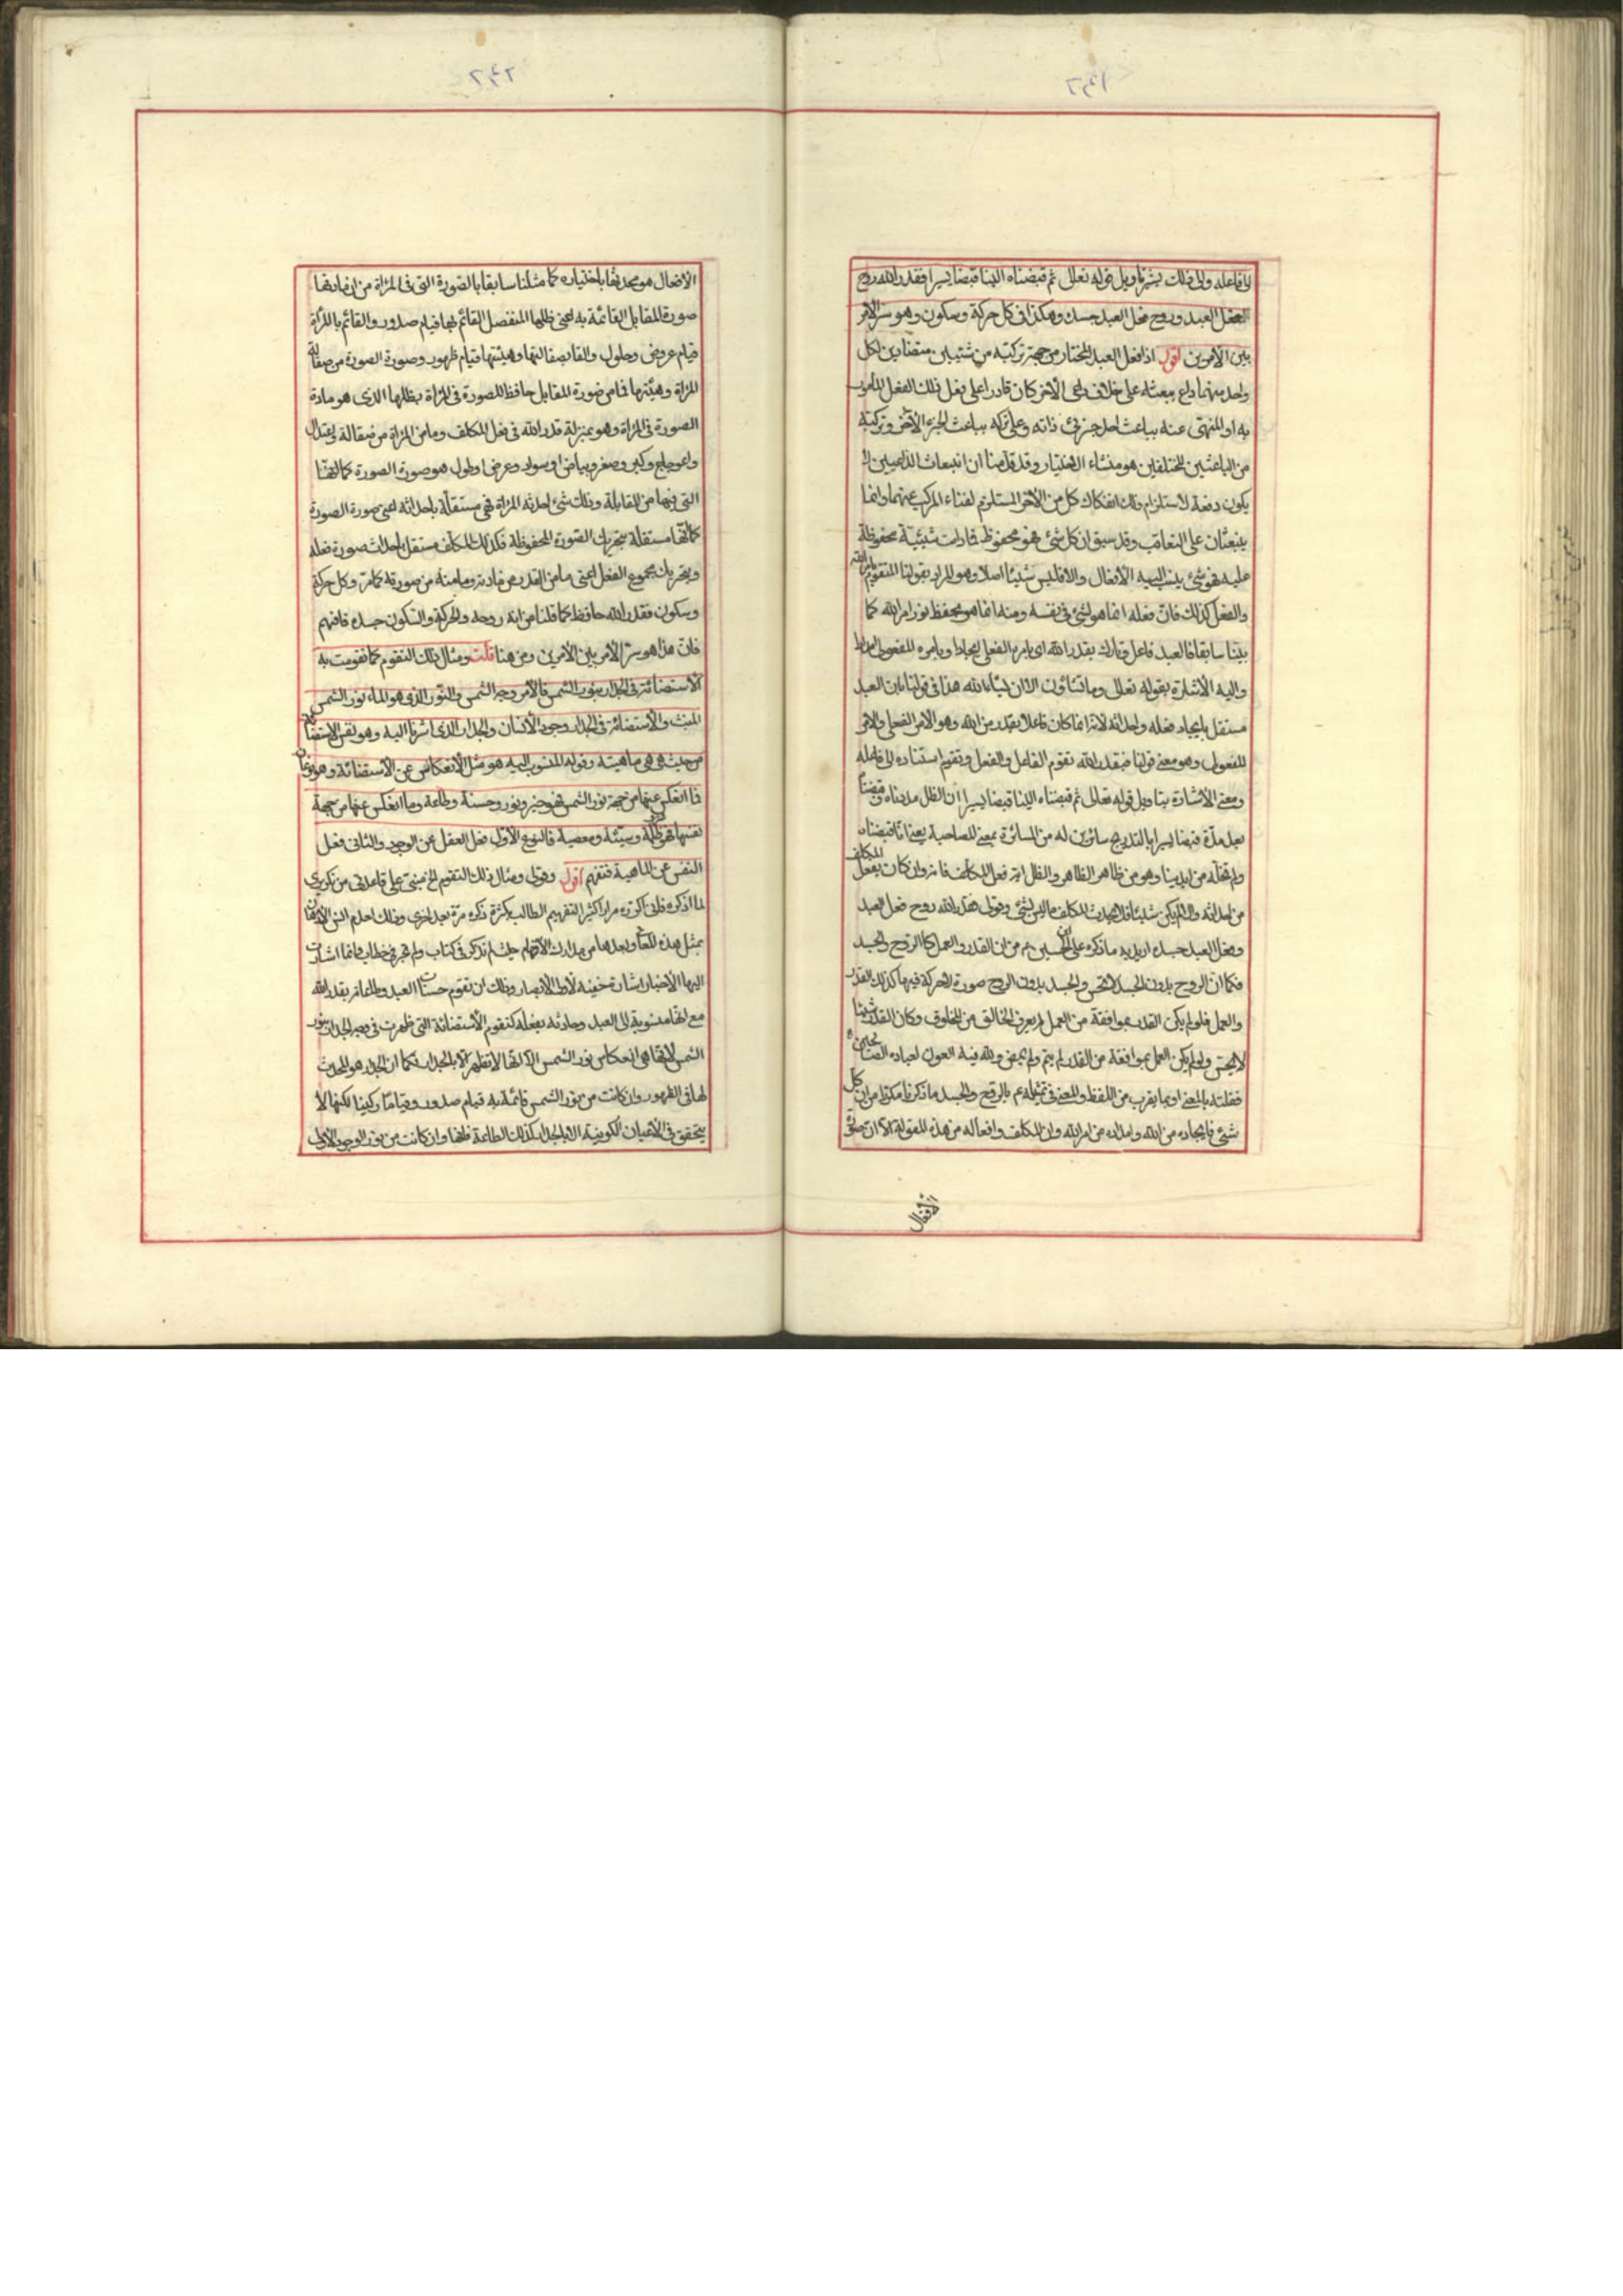 الى فاعله والى ذلك يشير تأويل قوله تعالى ثم قبضناه الينا قبضا يسيرا فقدر الله روح
لفعل العبد وروح فعل العبد جسده وهكذا في كل حركة وسكون وهو سر الامر
بين الأمرين اقول اذا فعل العبد المختار من جهة تركبه من شيئين متضادين لكل
واحد منهما داع يبعثه على خلاف داعى الآخر كان قادرا على فعل ذلك الفعل المأمور
به او المنهى عنه بباعث احد جزئى ذاته وعلى تركه بباعث الجزء الآخر وتركبه
من الباعثين المختلفين هو منشاء الاختيار وقد قدمنا ان انبعاث الداعيين لا
يكون دفعة لاستلزام ذلك انفكاك كل من الآخر المستلزم لفناء المركب عنهما وانما
ينبعثان على التعاقب وقد سبق ان كل شئ فهو محفوظ فما دامت شيئيته محفوظة
عليه فهو شئ ينسب اليه الأفعال والا فليس شيئا اصلا وهو المراد بقولنا المتقوم بامر الله
والفعل كذلك فان فعله انما هو شئ في نفسه ومنه انما هو بحفظ نور امر الله كما
بينا سابقا فالعبد فاعل وتارك بقدر الله اى بامره الفعلى ايجادا وبامره المفعولى امدادا
واليه الأشارة بقوله تعالى وما تشاؤن الا ان يشاء الله هذا في قولنا بان العبد
مستقل بايجاد فعله واحداثه لانه انما كان فاعلا بقدر من الله وهو الأمر الفعلى والامر
المفعولى وهو معنى قولنا فبقدر الله تقوم الفاعل والفعل وتقوم استناده الى فاعله
ومعنى الأشارة بتاويل قوله تعالى ثم قبضناه الينا قبضا يسيرا ان الظل مددناه وقبضناه
بعد مدة قبضا يسيرا بالتدريج سائرين له من المسائرة بمعنى المصاحبة يعنى انا قبضناه
ولم نخله من ايدينا وهو من ظاهر الظاهر والظل آية فعل المكلف فانه وان كان بفعل المكلف
من احداثه والا لم يكن شيئا فلا يحدث المكلف ما ليس بشئ وقولى فقدر الله روح فعل العبد
وفعل العبد جسده اريد به ما ذكره على بن الحسين ع م من ان القدر والعمل كالروح والجسد
فكما ان الروح بدون الجسد لا تحس والجسد بدون الروح صورة لا حركة فيها كذلك القدر
والعمل فلو لم يكن القدر بموافقة من العمل لم يعرف الخالق من المخلوق وكان القدر شيئا
لا يحس ولو لم يكن العمل بموافقة من القدر لم يتم ولم يمض ولله فيه العون لعباده الصالحين
فقلته بالمعنى او بما يقرب من اللفظ والمعنى في تمثيله ع م بالروح والجسد ما ذكرنا مكررا من ان كل
شئ فايجاده من الله وامداده من امر الله وان المكلف وافعاله من هذه المقولة الا ان
الأفعال
الافعال هو محدثها باختياره كما مثلنا سابقا بالصورة التى في المرآة من ان مادتها
صورة المقابل القائمة به اعنى ظلها المنفصل القائم بها قيام صدور والقائم بالمرآة
قيام عروض وحلول والقا بصقالتها وهيئتها قيام ظهور وصورة الصورة من صقالة
المرآة وهيئتها فما من صورة المقابل حافظ للصورة في المرآة بظلها الذى هو مادة
الصورة في المرآة وهو بمنزلة قدر الله في فعل المكلف وما من المرآة من صقالة واعتدال
واعوجاج وكبر وصغر وبياض او سواد وعرض او طول هو صورة الصورة كما انها
التى فيها من المقابلة وذلك شئ احدثه المرآة فهى مستقلة باحداثه اعنى صورة الصورة
كما انها مستقلة بتحريك الصورة المحفوظة فكذلك المكلف مستقل باحداث صورة فعله
وبتحريك مجموع الفعل اعنى ما من القدر من مادته وما منه من صورته كما مر وكل حركة
وسكون فقدر الله حافظ كما قلنا من انه روحه والحركة والسكون جسده فافهم
فان هذا هو سر الأمر بين الأمرين ومن هنا قلت ومثال ذلك التقوم كما تقومت به
الأستضائة في الجدار بنور الشمس فالأمر وجه الشمس والنور الذى هو الماء نور الشمس
المنبث والأستضائة في الجدار وجود الأنسان والجدار الذى اشرنا اليه وهو نفس الاستضائة
من حيث هى هى ماهيته وفعله المنسوب اليه هو مثل الأنعكاس عن الأستضائة وهو نوعان
فما انعكس عنها من جهة نور الشمس فهو خير ونور وحسنة وطاعة وما انعكس عنها من جهة
نفسها فهو ظلمة وسيئة ومعصية فالنوع الأول فعل العقل عن الوجود والثانى فعل
النفس عن الماهية فتفهم اقول وقولى ومثال ذلك التقوم الخ مبنى على قاعدتى من تكريرى
لما اذكره فانى اكرره مرارا كثيرا لتفهيم الطالب بكثرة ذكره مرة بعد اخرى وذلك لعدم انس الأذهان
بمثل هذه المعانى وبعدها من مدارك الأفهام حيث لم تذكر في كتاب ولم تجر في خطاب وانما اشارت
اليها الأخبار اشارة خفية لأولى الأبصار وذلك ان تقوم حسنات العبد وطاعاته بقدر الله
مع انها منسوبة الى العبد وحادثة بفعله كتقوم الأستضائة التى ظهرت في وجه الجدار بنور
الشمس لانها هى انعكاس نور الشمس الا انها لا تظهر الا بالجدار فكما ان الجدار هو المحدث
لها في الظهور وان كانت من نور الشمس قائمة به قيام صدور وقياما ركنيا لكنها لا
يتحقق في الأعيان الكونية الا بالجدار كذلك الطاعة فانها وان كانت من نور الوجود الاول